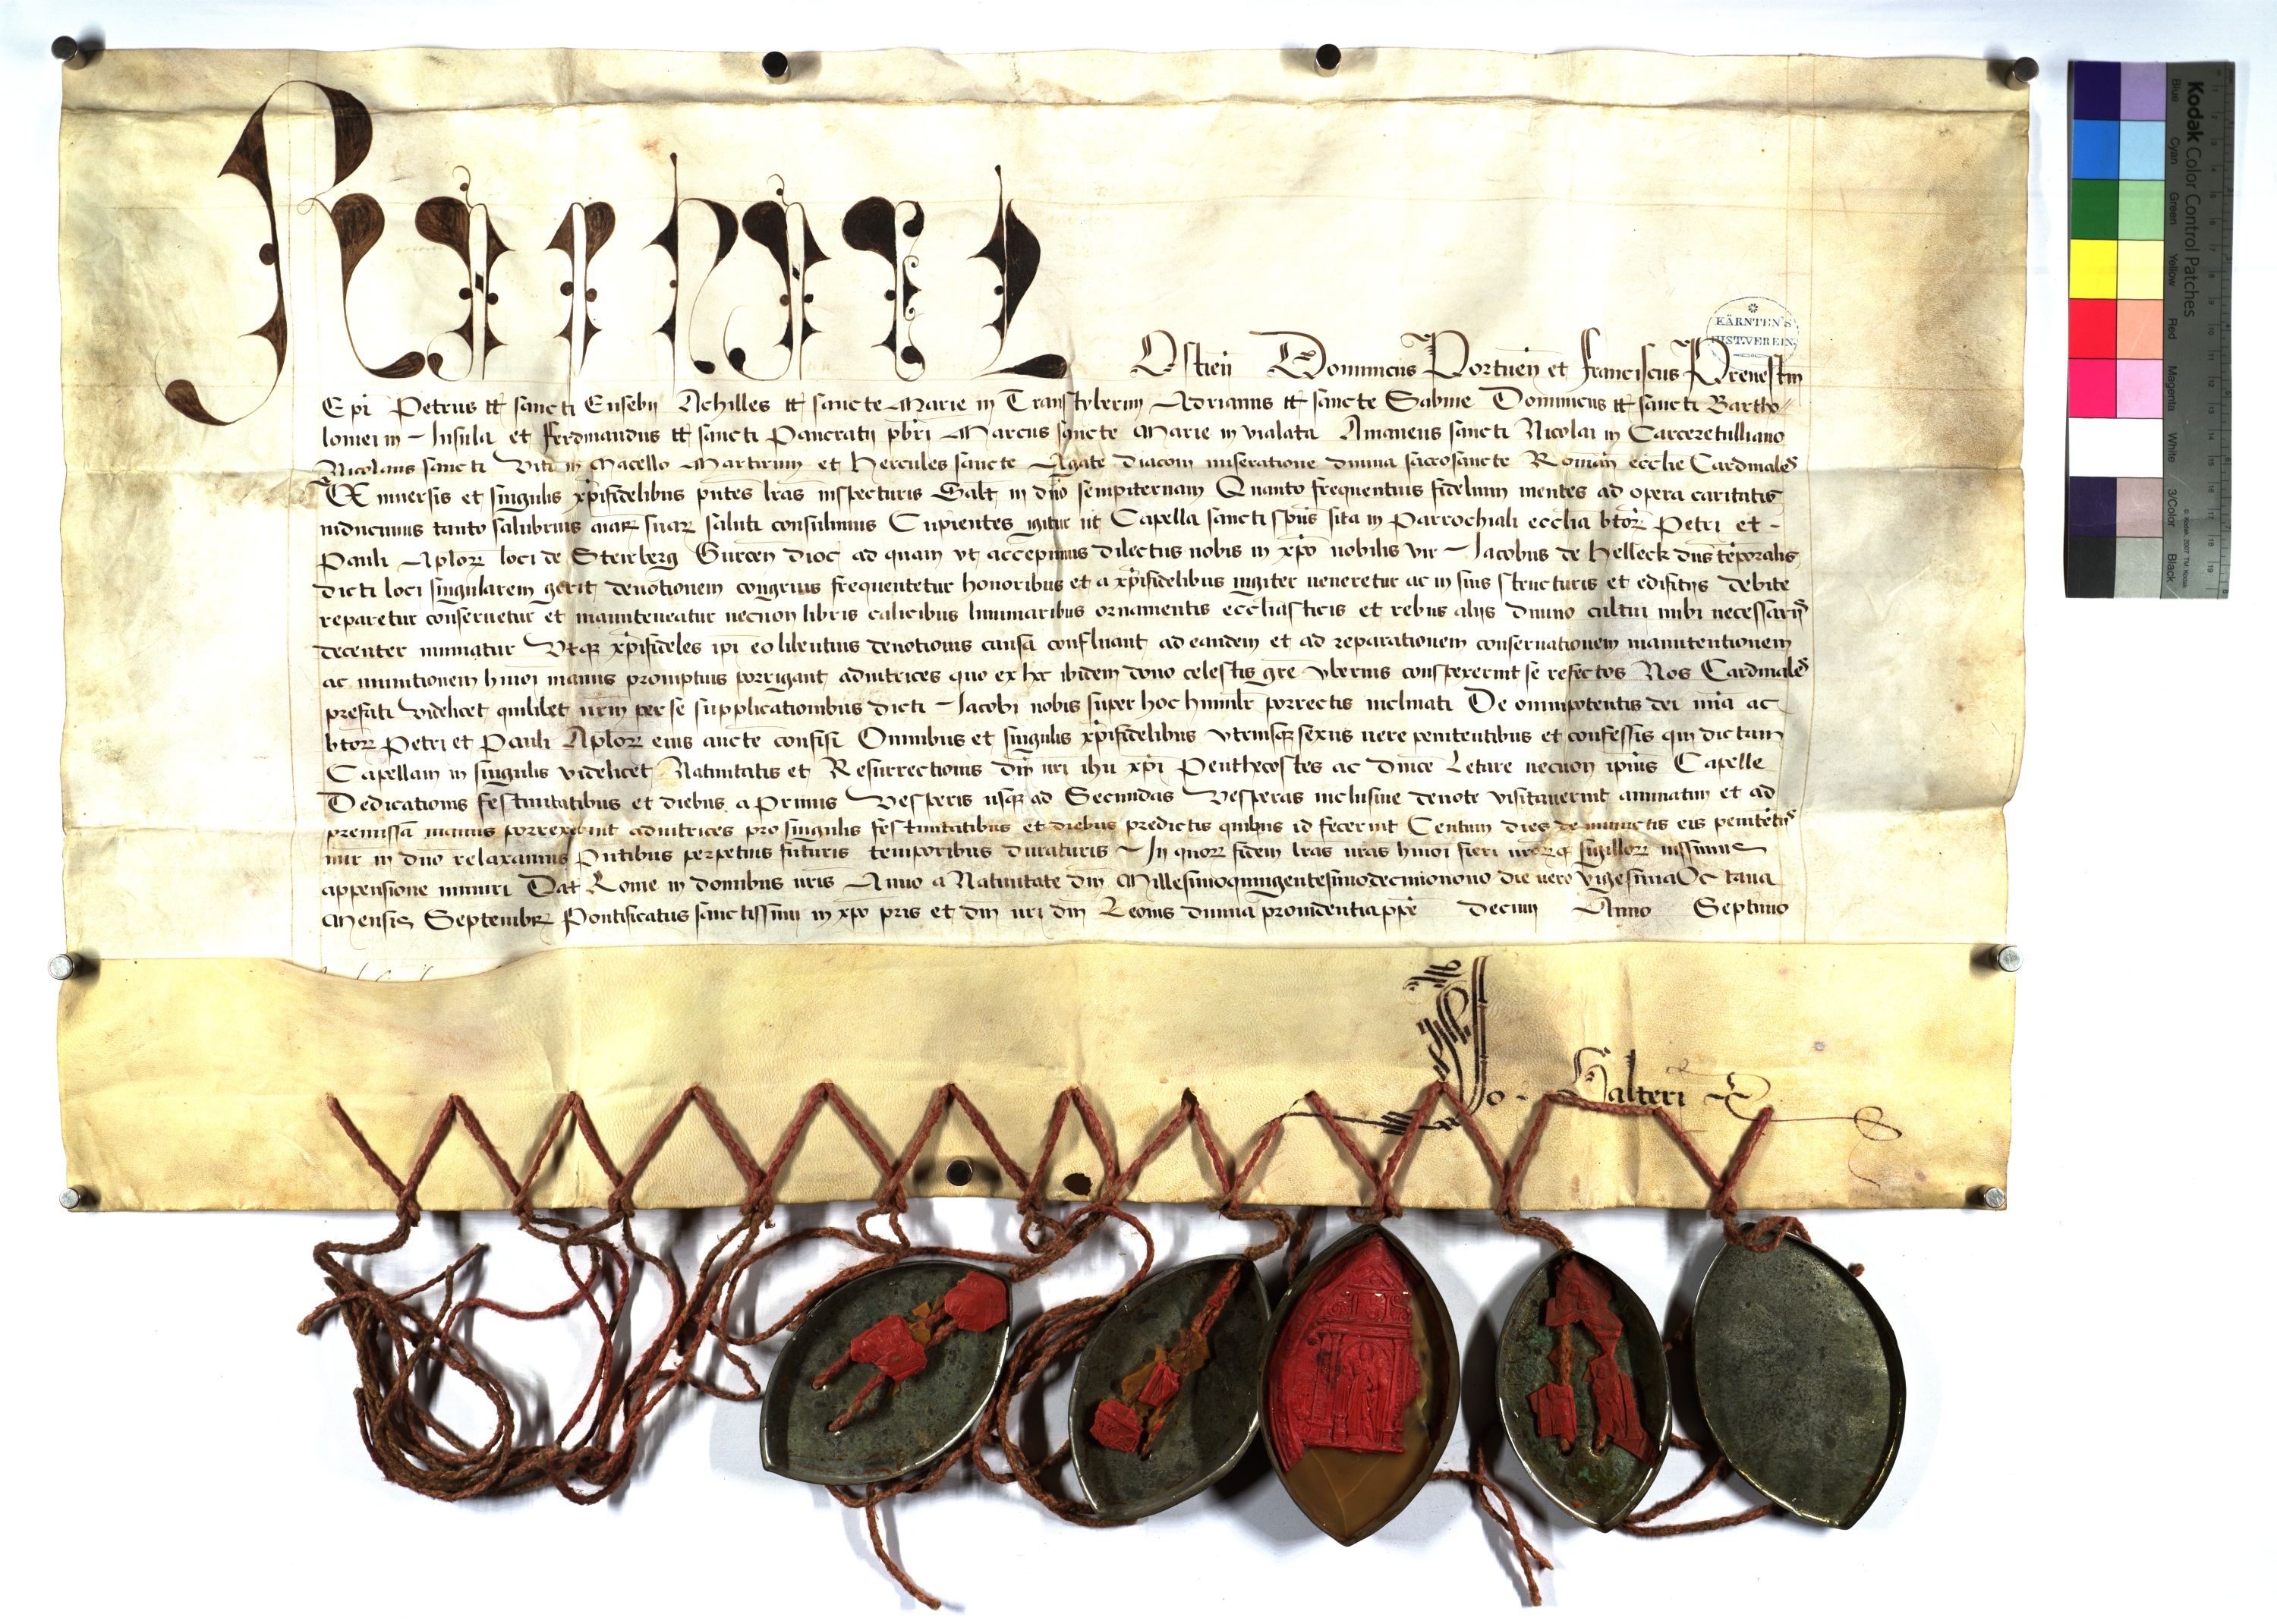 Raphael Ostien Dominicus Portuen et Franciscus Prenestin
Epi Petrus tt sancti Eusebij Achilles tt sancte Marie in Transtyberim Adrianus tt sancte Sabine Dominicus tt sancti Bartho-
lomei in Insula et Ferdinandus tt sancti Pancratij pbri Marcus sancte Marie in vialata Amaneus sancti Nicolai in Carceretulliano
Nicolaus sancti Viti in Macello Martirum et Hercules sancte Agate diaconi miseratione diuina sacrosancte Roman ecclie Cardinales
Vniuersis et singulis xpifidelibus pntes lras inspecturis Salt in dno sempiternam Quanto frequentius fidelium mentes ad opera caritatis
inducimus tanto salubrius aiar suar saluti consulimus Cupientes igitur ut Capella sancti spus sita in Parrochiali ecclia btor Petri et
Pauli Aplor loci de Steirberg Gurcen dioc ad quam vt accepimus dilectus nobis in xpo nobilis vir Jacobus de Helleck dns teporalis
dicti loci singularem gerit deuotionem congruis frequentetur honoribus et a xpifidelibus iugiter ueneretur ac in suis structuris et edifitijs debite
reparetur conseruetur et manuteneatur necnon libris calicibus luminaribus ornamentis eccliasticis et rebus alijs diuino cultui inibi necessarijs
decenter muniatur Vtqz xpifideles ipi eo libentius deuotionis causa confluant ad eandem et ad reparationem conseruationem manutentionem
ac munitionem hmoi manus promptius porrigant adiutrices quo ex hoc ibidem dono celestis gre vberius conspexerint se refectos Nos Cardinales
prefati videlicet quilibet nrm per se supplicationibus dicti Jacobi nobis super hoc humilr porrectis inclinati De omnipotentis dei mia ac
btor Petri et Pauli Aplor eius aucte confisi Omnibus et singulis xpifidelibus vtriusqz sexus uere penitentibus et confessis qui dictam
Capellam in singulis videlicet Natiuitatis et Resurrectionis dni nri ihu xpi Penthecostes ac dnice Letare necnon ipius Capelle
Dedicationis festiuitatibus et diebus a Primis Vesperis usqz ad Secundas Vesperas inclusiue deuote visitauerint annuatim et ad
premissa manus porrexerint adiutrices pro singulis festiuitatibus et diebus predictis quibus id fecerint Centum dies de iniunctis eis penitetijs
mir in dno relaxamus Pntibus perpetuis futuris temporibus duraturis In quor fidem lras nras hmoi fieri nrorqz sigillor iussimus
appensione muniri Dat Rome in domibus nris Anno a Natiuitate dni Millesimoquingentesimodecimonono die uero VigesimaOctaua
Mensis Septembr Pontificatus sanctissimi in xpo pris et dni nri dni Leonis diuina prouidentia ppe Decimi Anno Septimo
Jo Galteri
KÄRNTEN'S
HIST. VEREIN
Kodak Color Control Patches
Blue Cyan Green Yellow Red Magenta White 3/Color Black